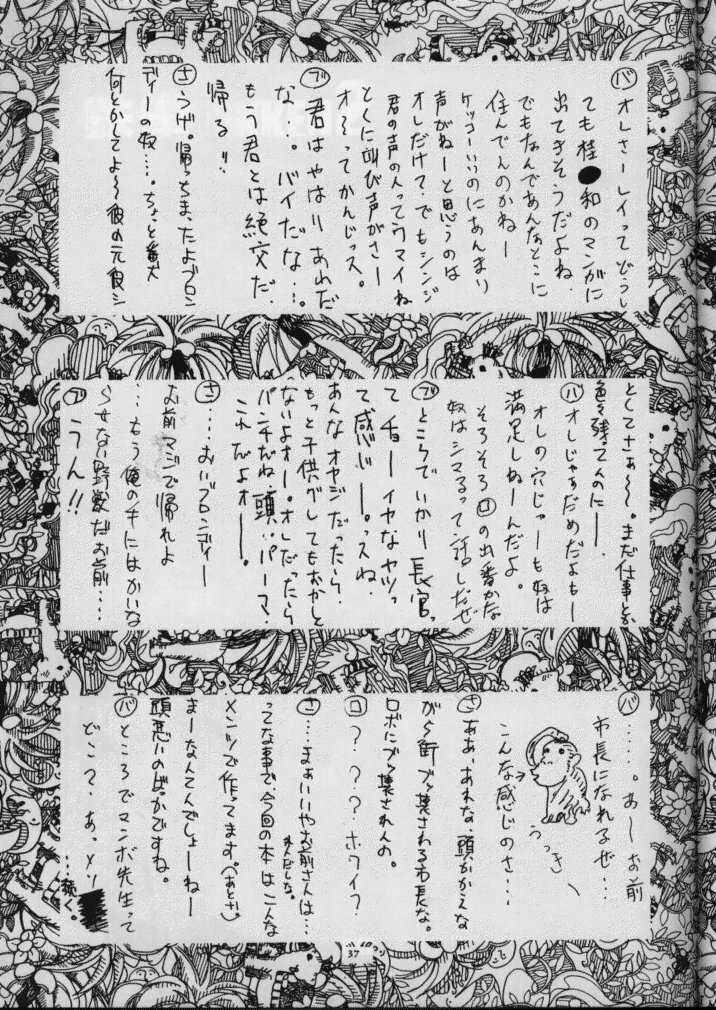 バ オレさーレイってどうし
ても桂●和のマンガに
出てきそうだよね。
でもなんであんなとこに
住んでんのかねー
ケッコーいいのにあんまり
声がねーと思うのは
オレだけ?でもシンジ
君の声の人ってウマイね
とくに叫び声がさー
オーってかんじっス。
ブ 君はやはりあれだ
な…。バイだな…。
もう君とは絶交だ、
帰る!!
さ うげ。帰っちまったよブロン
ディーの奴……。ちょと番犬
何とかしてよ〜彼の元食シ
としてさぁ〜〜。まだ仕事とか
色々残ってんのにー。
バ オレじゃぁだめだよもー
オレの穴じゃーも奴は
満足しねーんだよ。
そろそろロの出番かな
奴はシマるって話しだぜ
ブ ところでいかり長官っ
てチョーイヤなヤツっ
て感じー。っスね、
あんなオヤジだったら、
もっと子供グレてもおかしと
ないよォー。オレだったら
パンチだね、頭、パーマ、
これだよォー。
さ …おいブロンディー
お前マジで帰れよ
…もう俺の手にはかいな
らせない野獣だお前……
ブ うん!!
バ ……。あーお前
市長になれるぜ…
こんな感じのさ…
うっきー
さ ああ、あれな、頭かかえな
がら街ブッ壊される市長な。
ロボにブッ壊されんの。
ロ ? ? ? ホワイ?
さ …まぁいいやお前さんは…
ってな事で今回の本はこんな
メンツで作ってます。(あとが)
まーなんてんでしょーねー
頭悪いのばっかですね。
バ ところでマンボ先生って
どこ?、あっメソ
…続く。
37